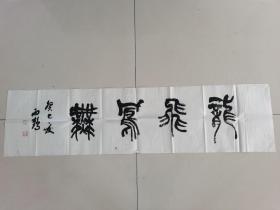 龍飛鳳舞
癸巳夏